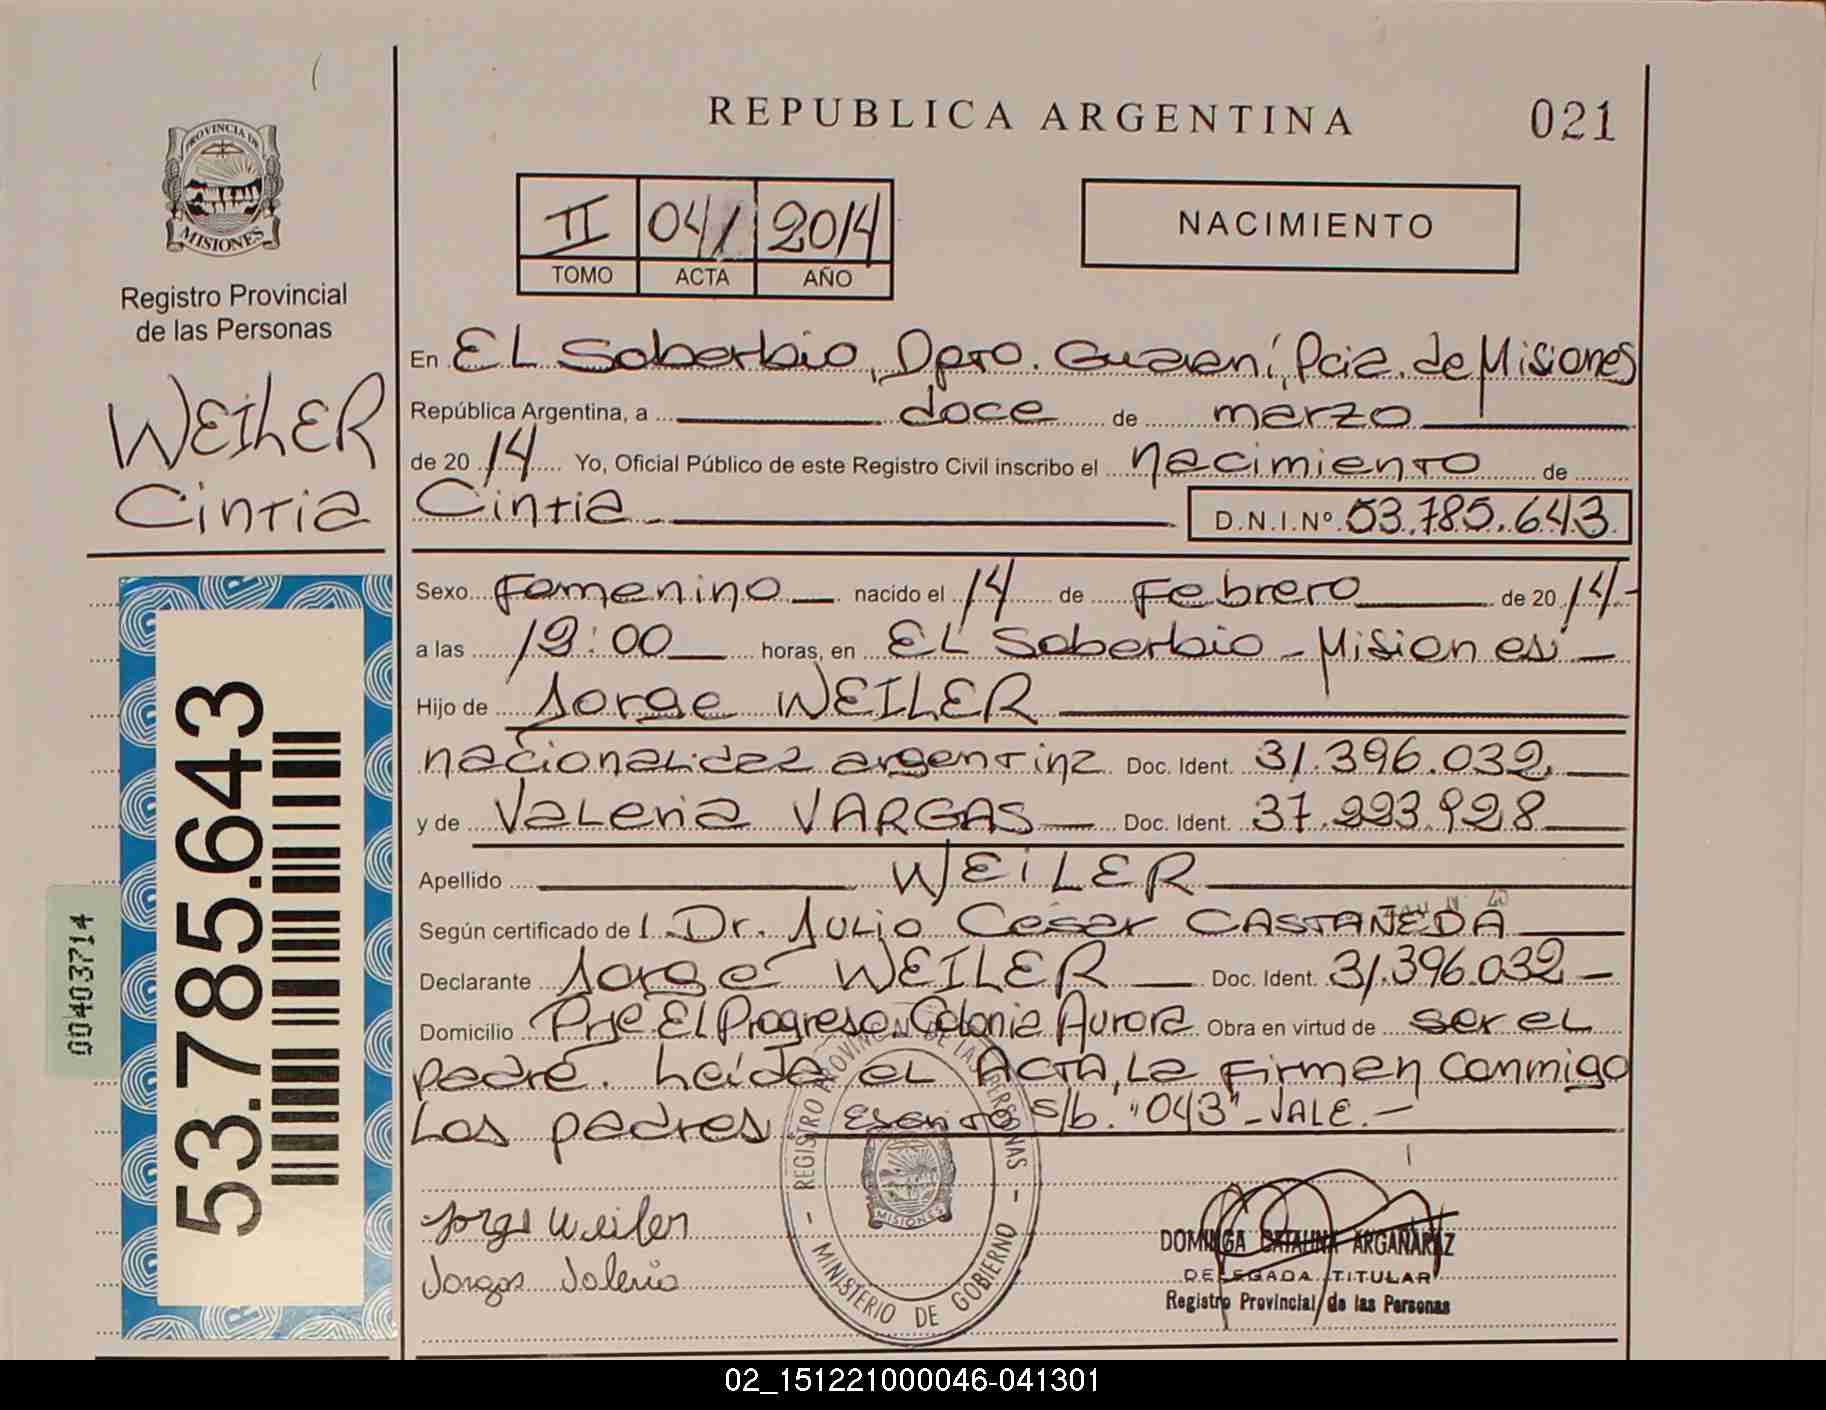 REPUBLICA ARGENTINA
021
PROVINCIA DE
MISIONES
Registro Provincial
de las Personas
WEILER
Cintia
II 041 2014
TOMO ACTA AÑO
NACIMIENTO
En EL Soberbio, Dpto. Guaraní, Pcia. de Misiones
República Argentina, a doce de marzo
de 20 14 Yo, Oficial Público de este Registro Civil inscribo el nacimiento de
Cintia D.N.I.Nº 53.785.643
Sexo Femenino nacido el 14 de Febrero de 20 14
a las 19:00 horas, en EL Soberbio - Misiones
Hijo de Jorge WEILER
nacionalidad argentina Doc. Ident. 31.396.032
y de Valeria VARGAS Doc. Ident. 37.223.928
Apellido WEILER
Según certificado de Dr. Julio César CASTAÑEDA
Declarante Jorge WEILER Doc. Ident. 31.396.032
Domicilio Prje El Progreso Colonia Aurora Obra en virtud de ser el
padre. Leída el ACTA, la firman conmigo
los padres. s/b. "043" - VALE.-
Jorge Weiler
Valeria
REGISTRO PROVINCIAL DE LAS PERSONAS
- MINISTERIO DE GOBIERNO -
MISIONES
DOMINGA CATALINA ARGAÑARAZ
DELEGADA TITULAR
Registro Provincial de las Personas
53.785.643
00403714
02_151221000046-041301